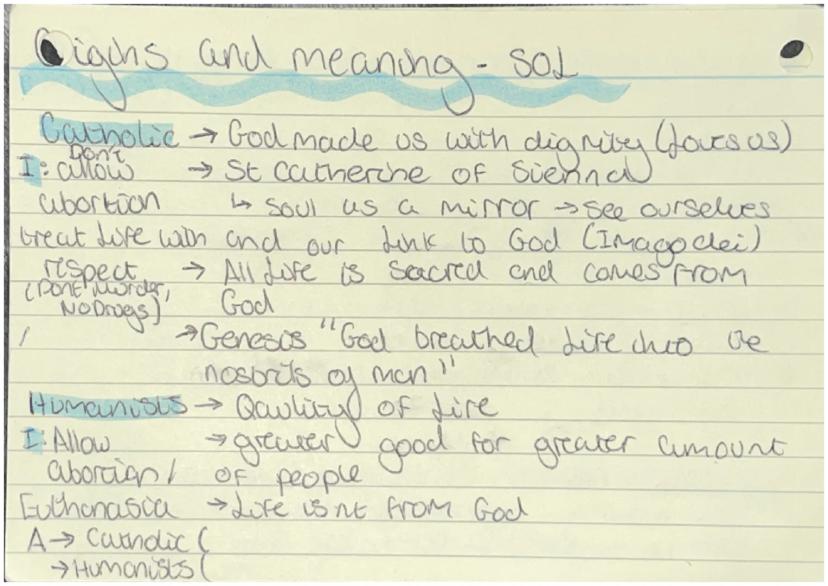 Origins and meaning - SOL
Catholic → God made us with dignity (loves us)
Don't
I: allow → St Catherine of Sienna
abortion ↳ soul as a mirror → see ourselves
treat life with and our link to God (Imago dei)
respect → All life is sacred and comes from
(Dont murder, God
No Drugs)
/ → Genesis "God breathed life into the
nostrils of man"
Humanists → Qaulity of life
I: Allow → greater good for greater amount
abortion / of people
Euthanasia → Life isnt from God
A → Catholic (
→ Humanists (